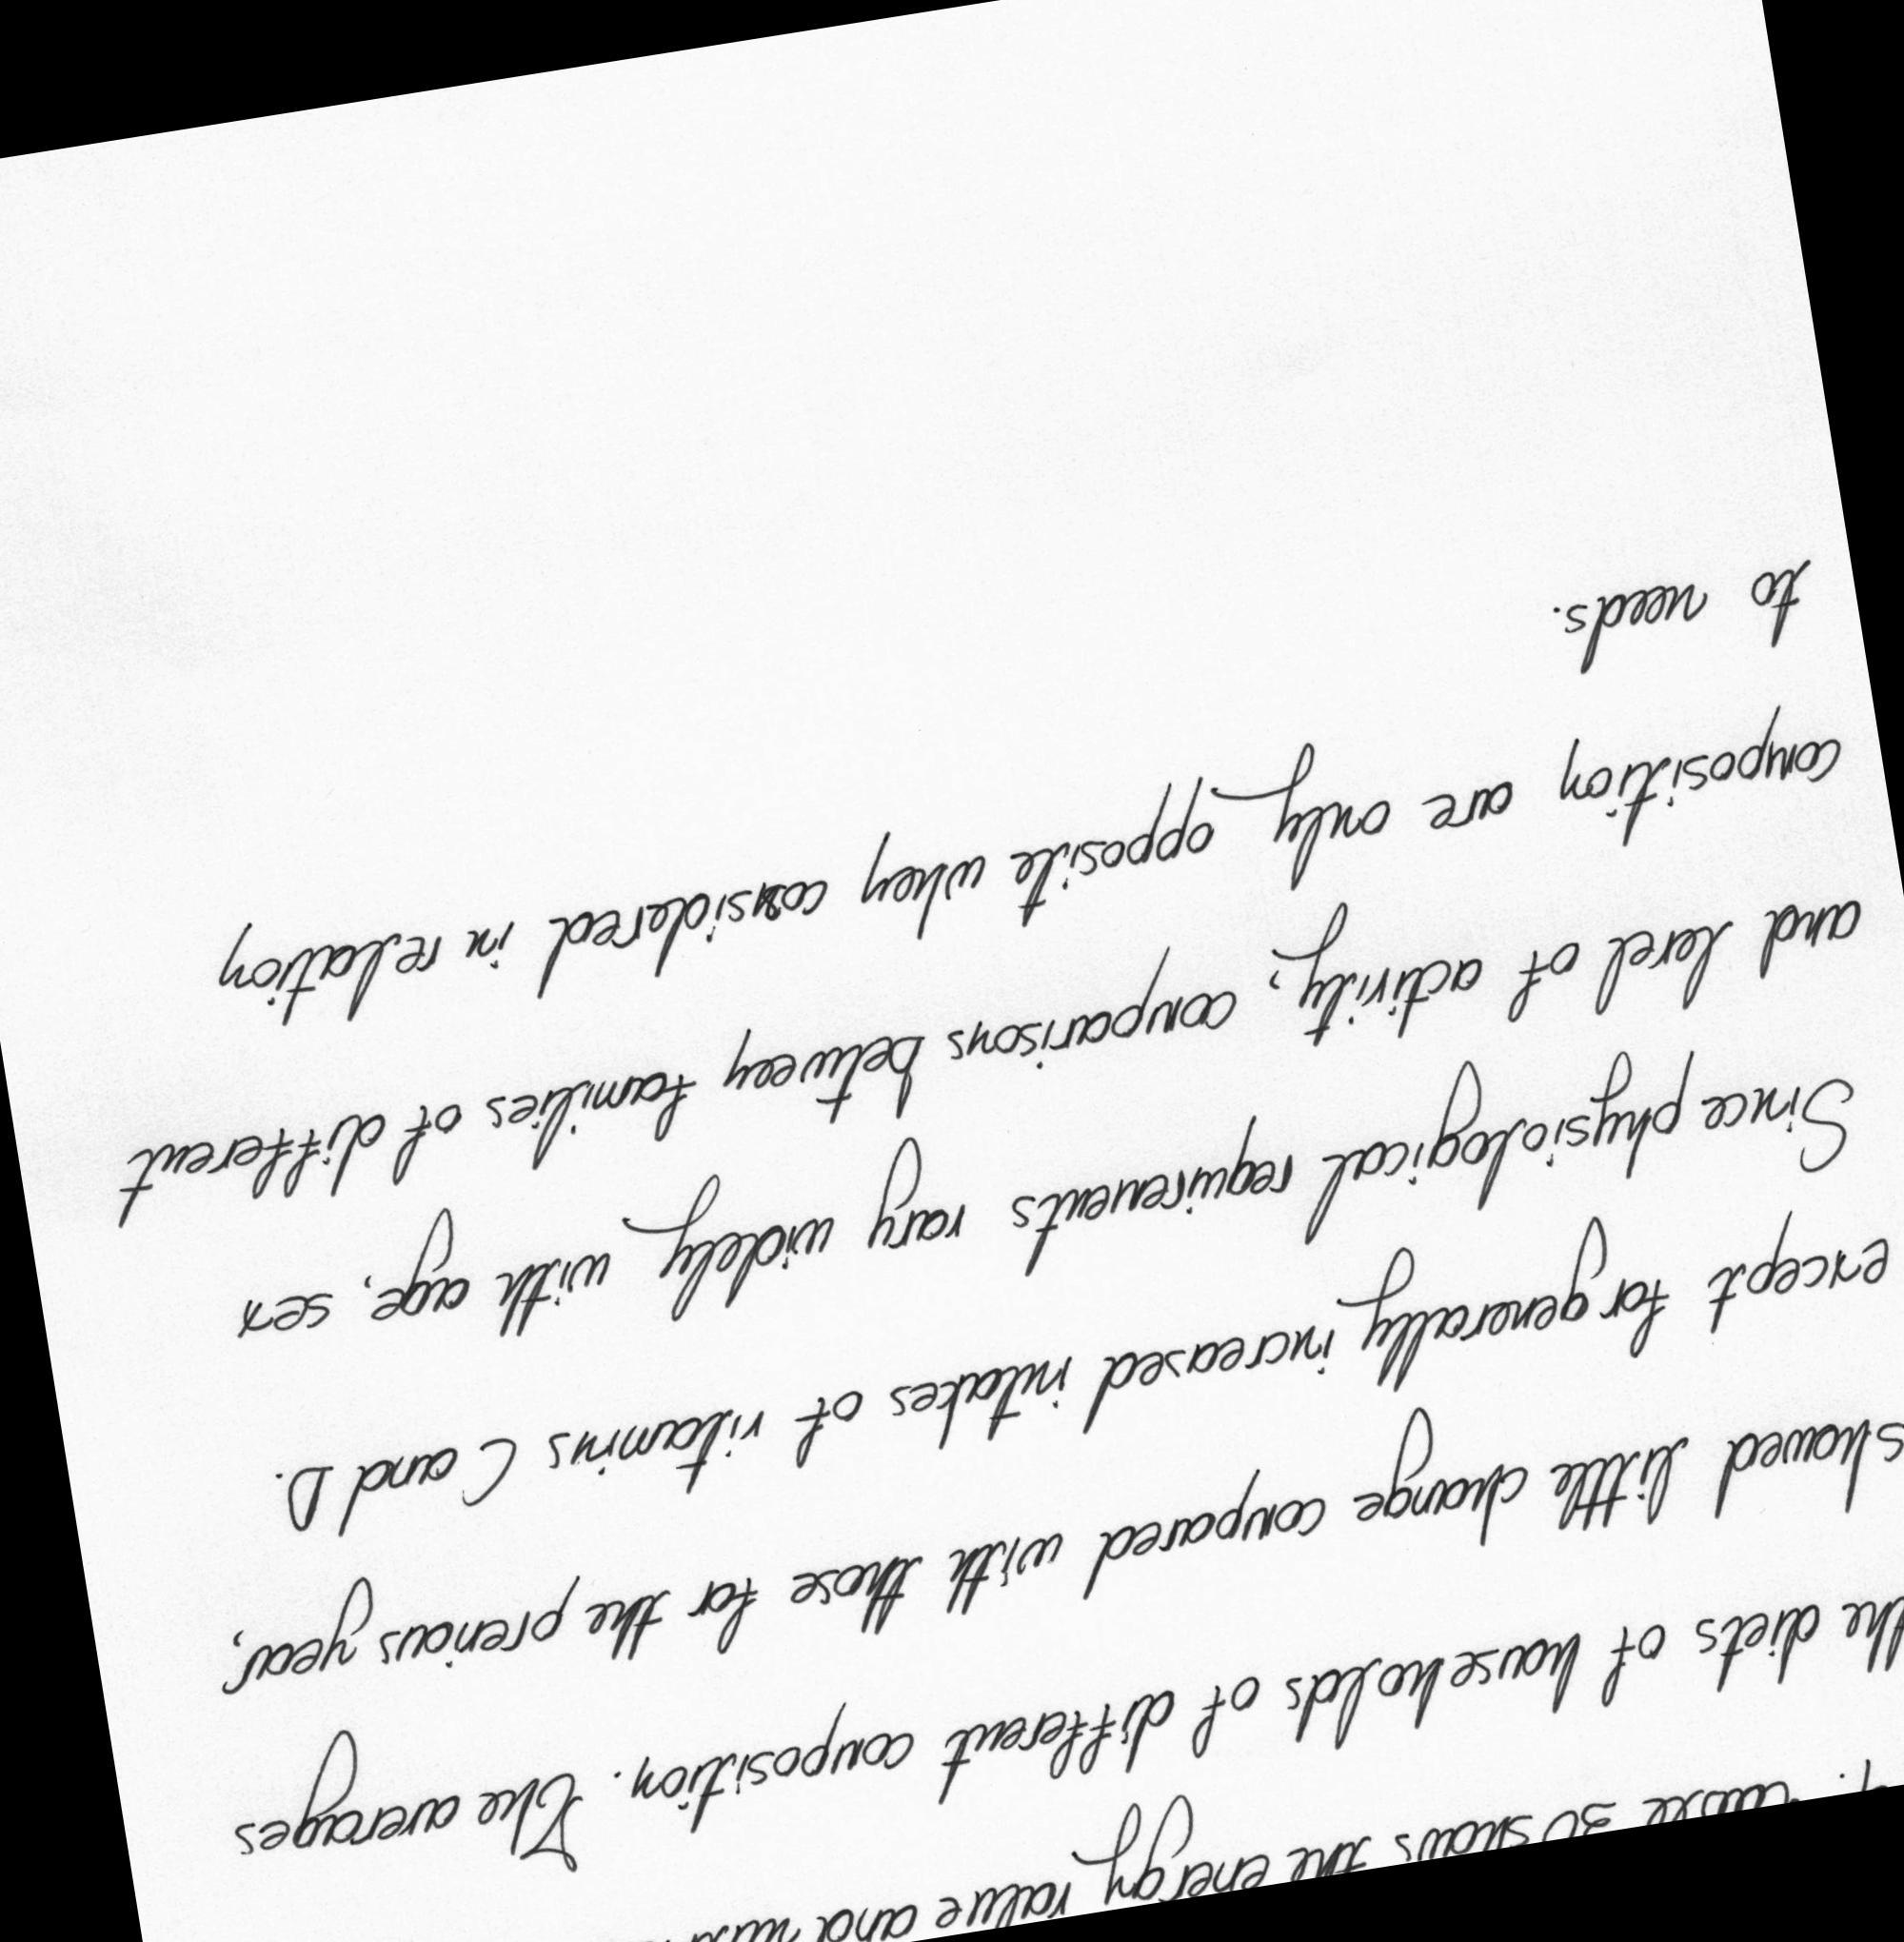 shows the energy value and
the diets of households of different composition. The averages
showed little change compared with those for the previous year,
except for generally increased intakes of vitamins C and D.
Since physiological requirements vary widely with age, sex
and level of activity, comparisons between families of different
composition are only opposite when considered in relation
to needs.